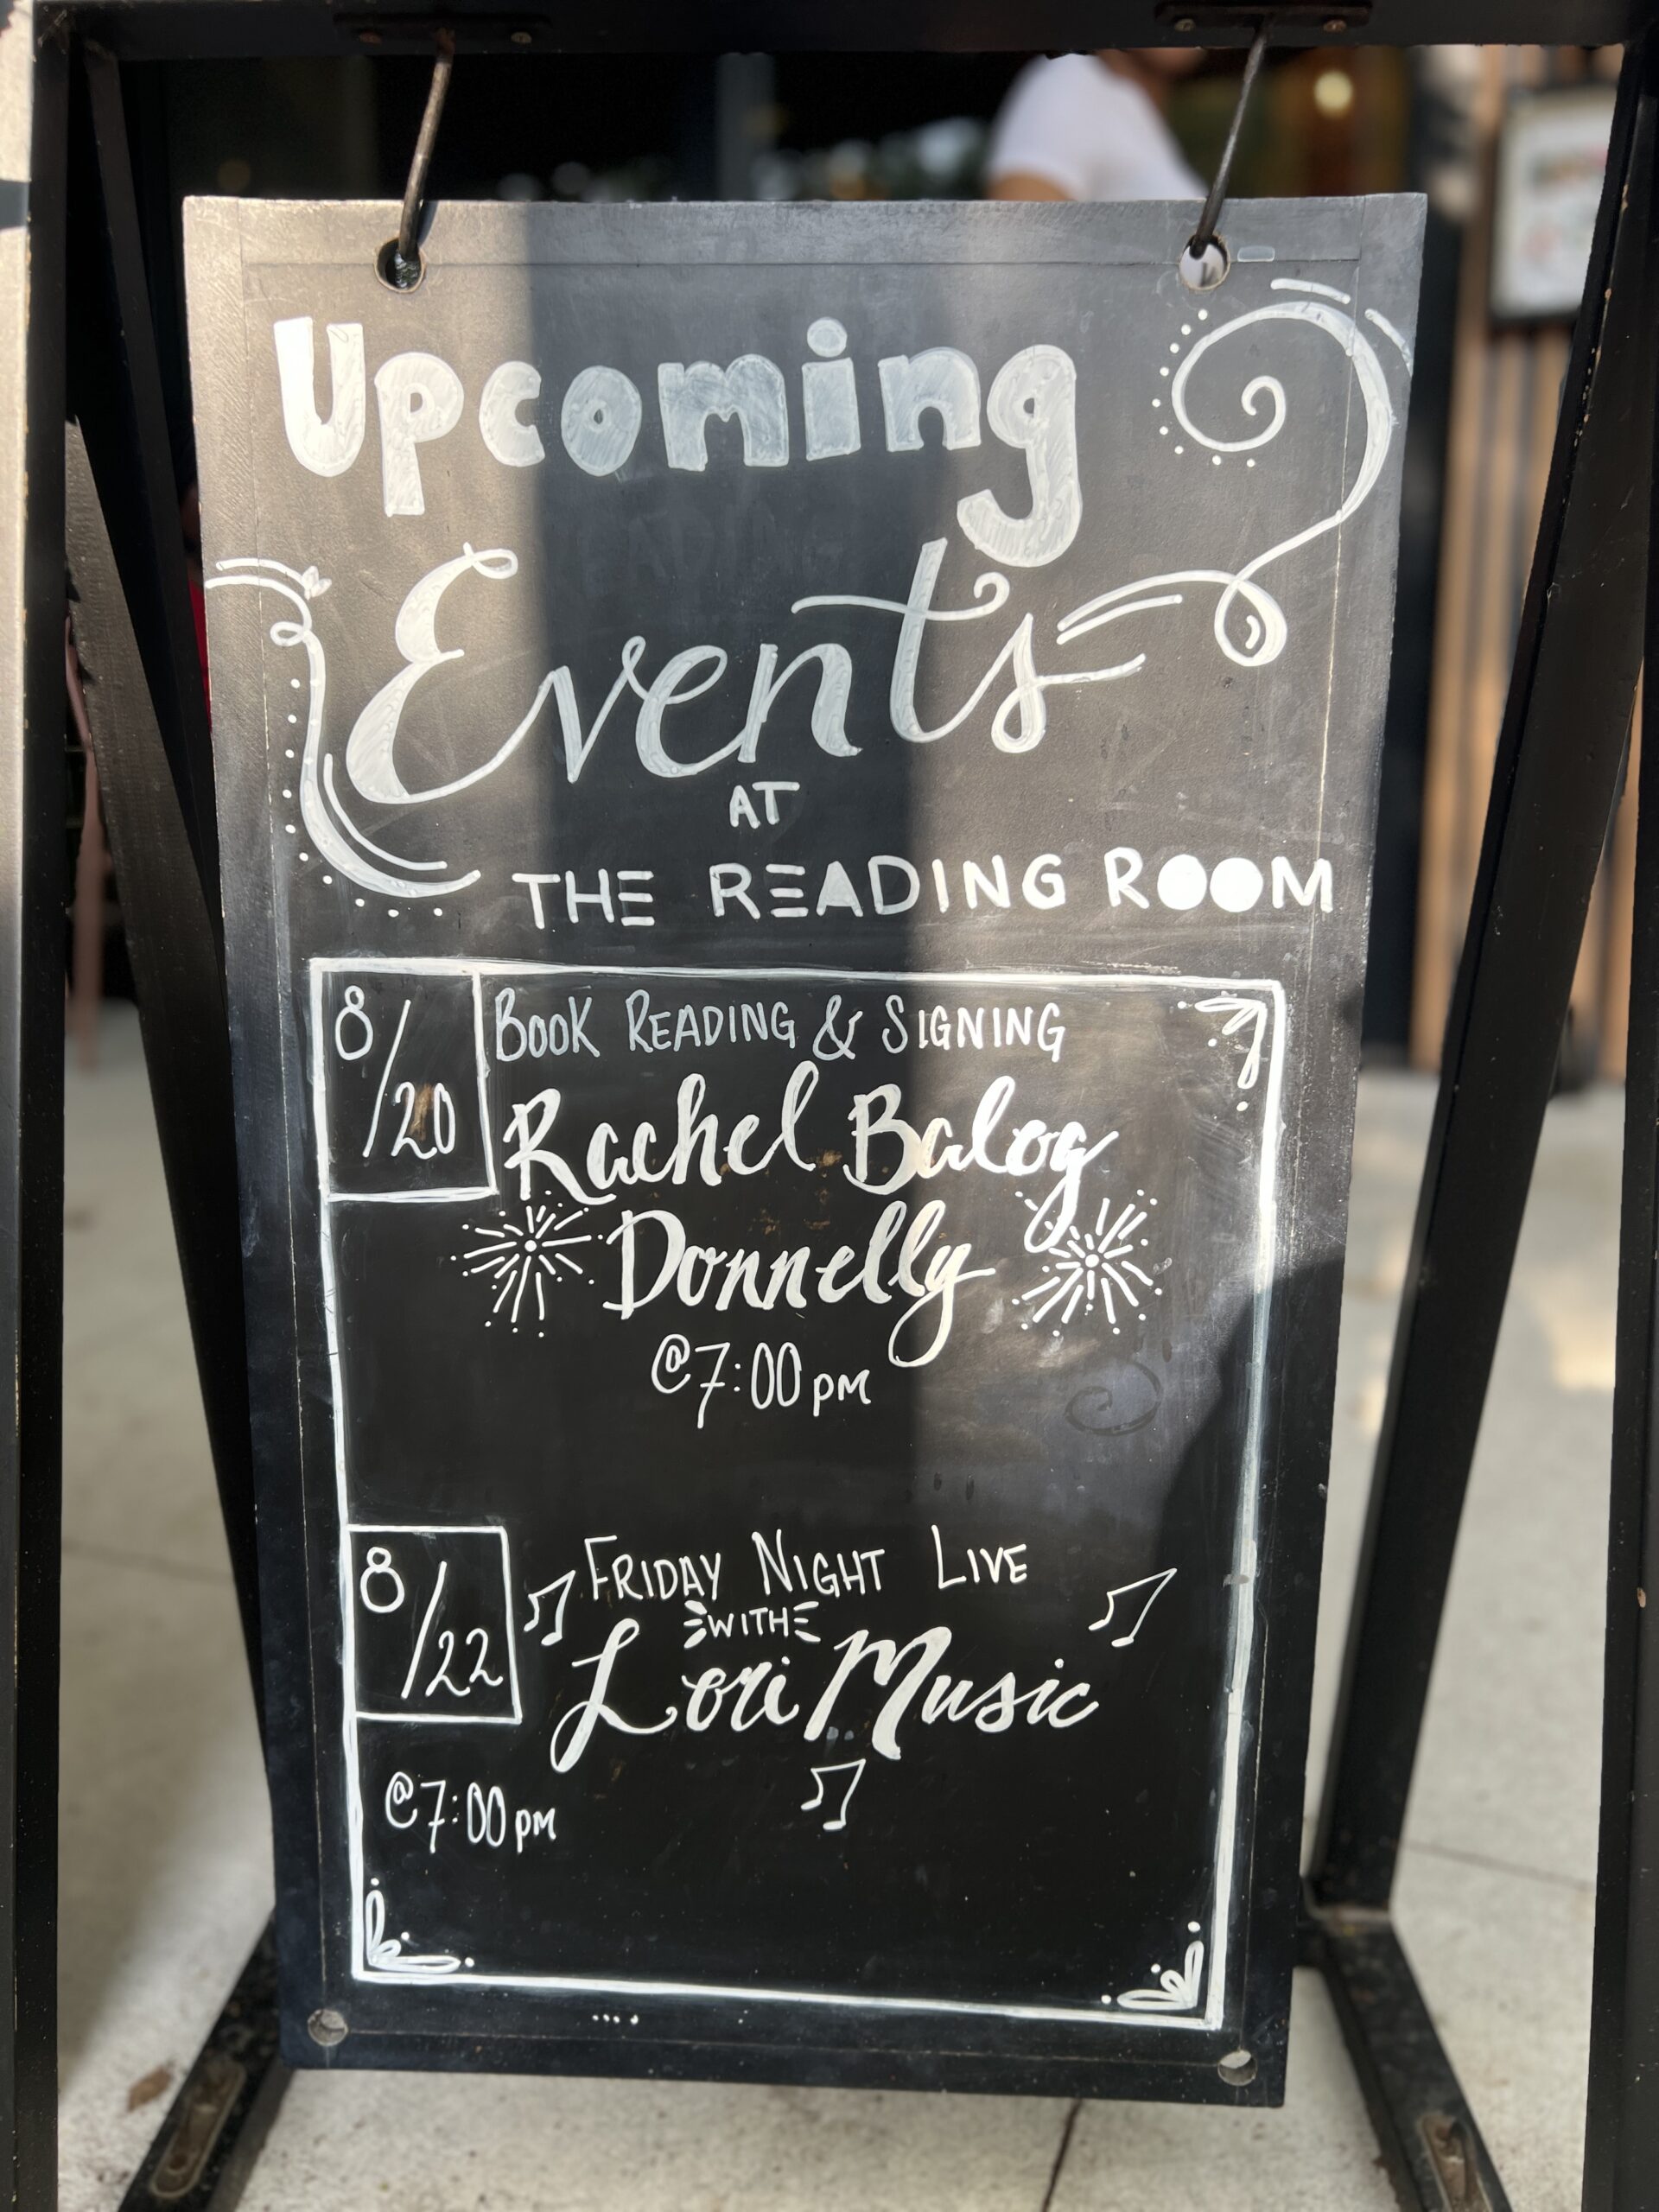 Upcoming
Events
AT
THE READING ROOM
8/20
BOOK READING & SIGNING
Rachel Balog
Donnelly
@7:00PM
8/22
FRIDAY NIGHT LIVE
WITH
Lori Music
@7:00PM